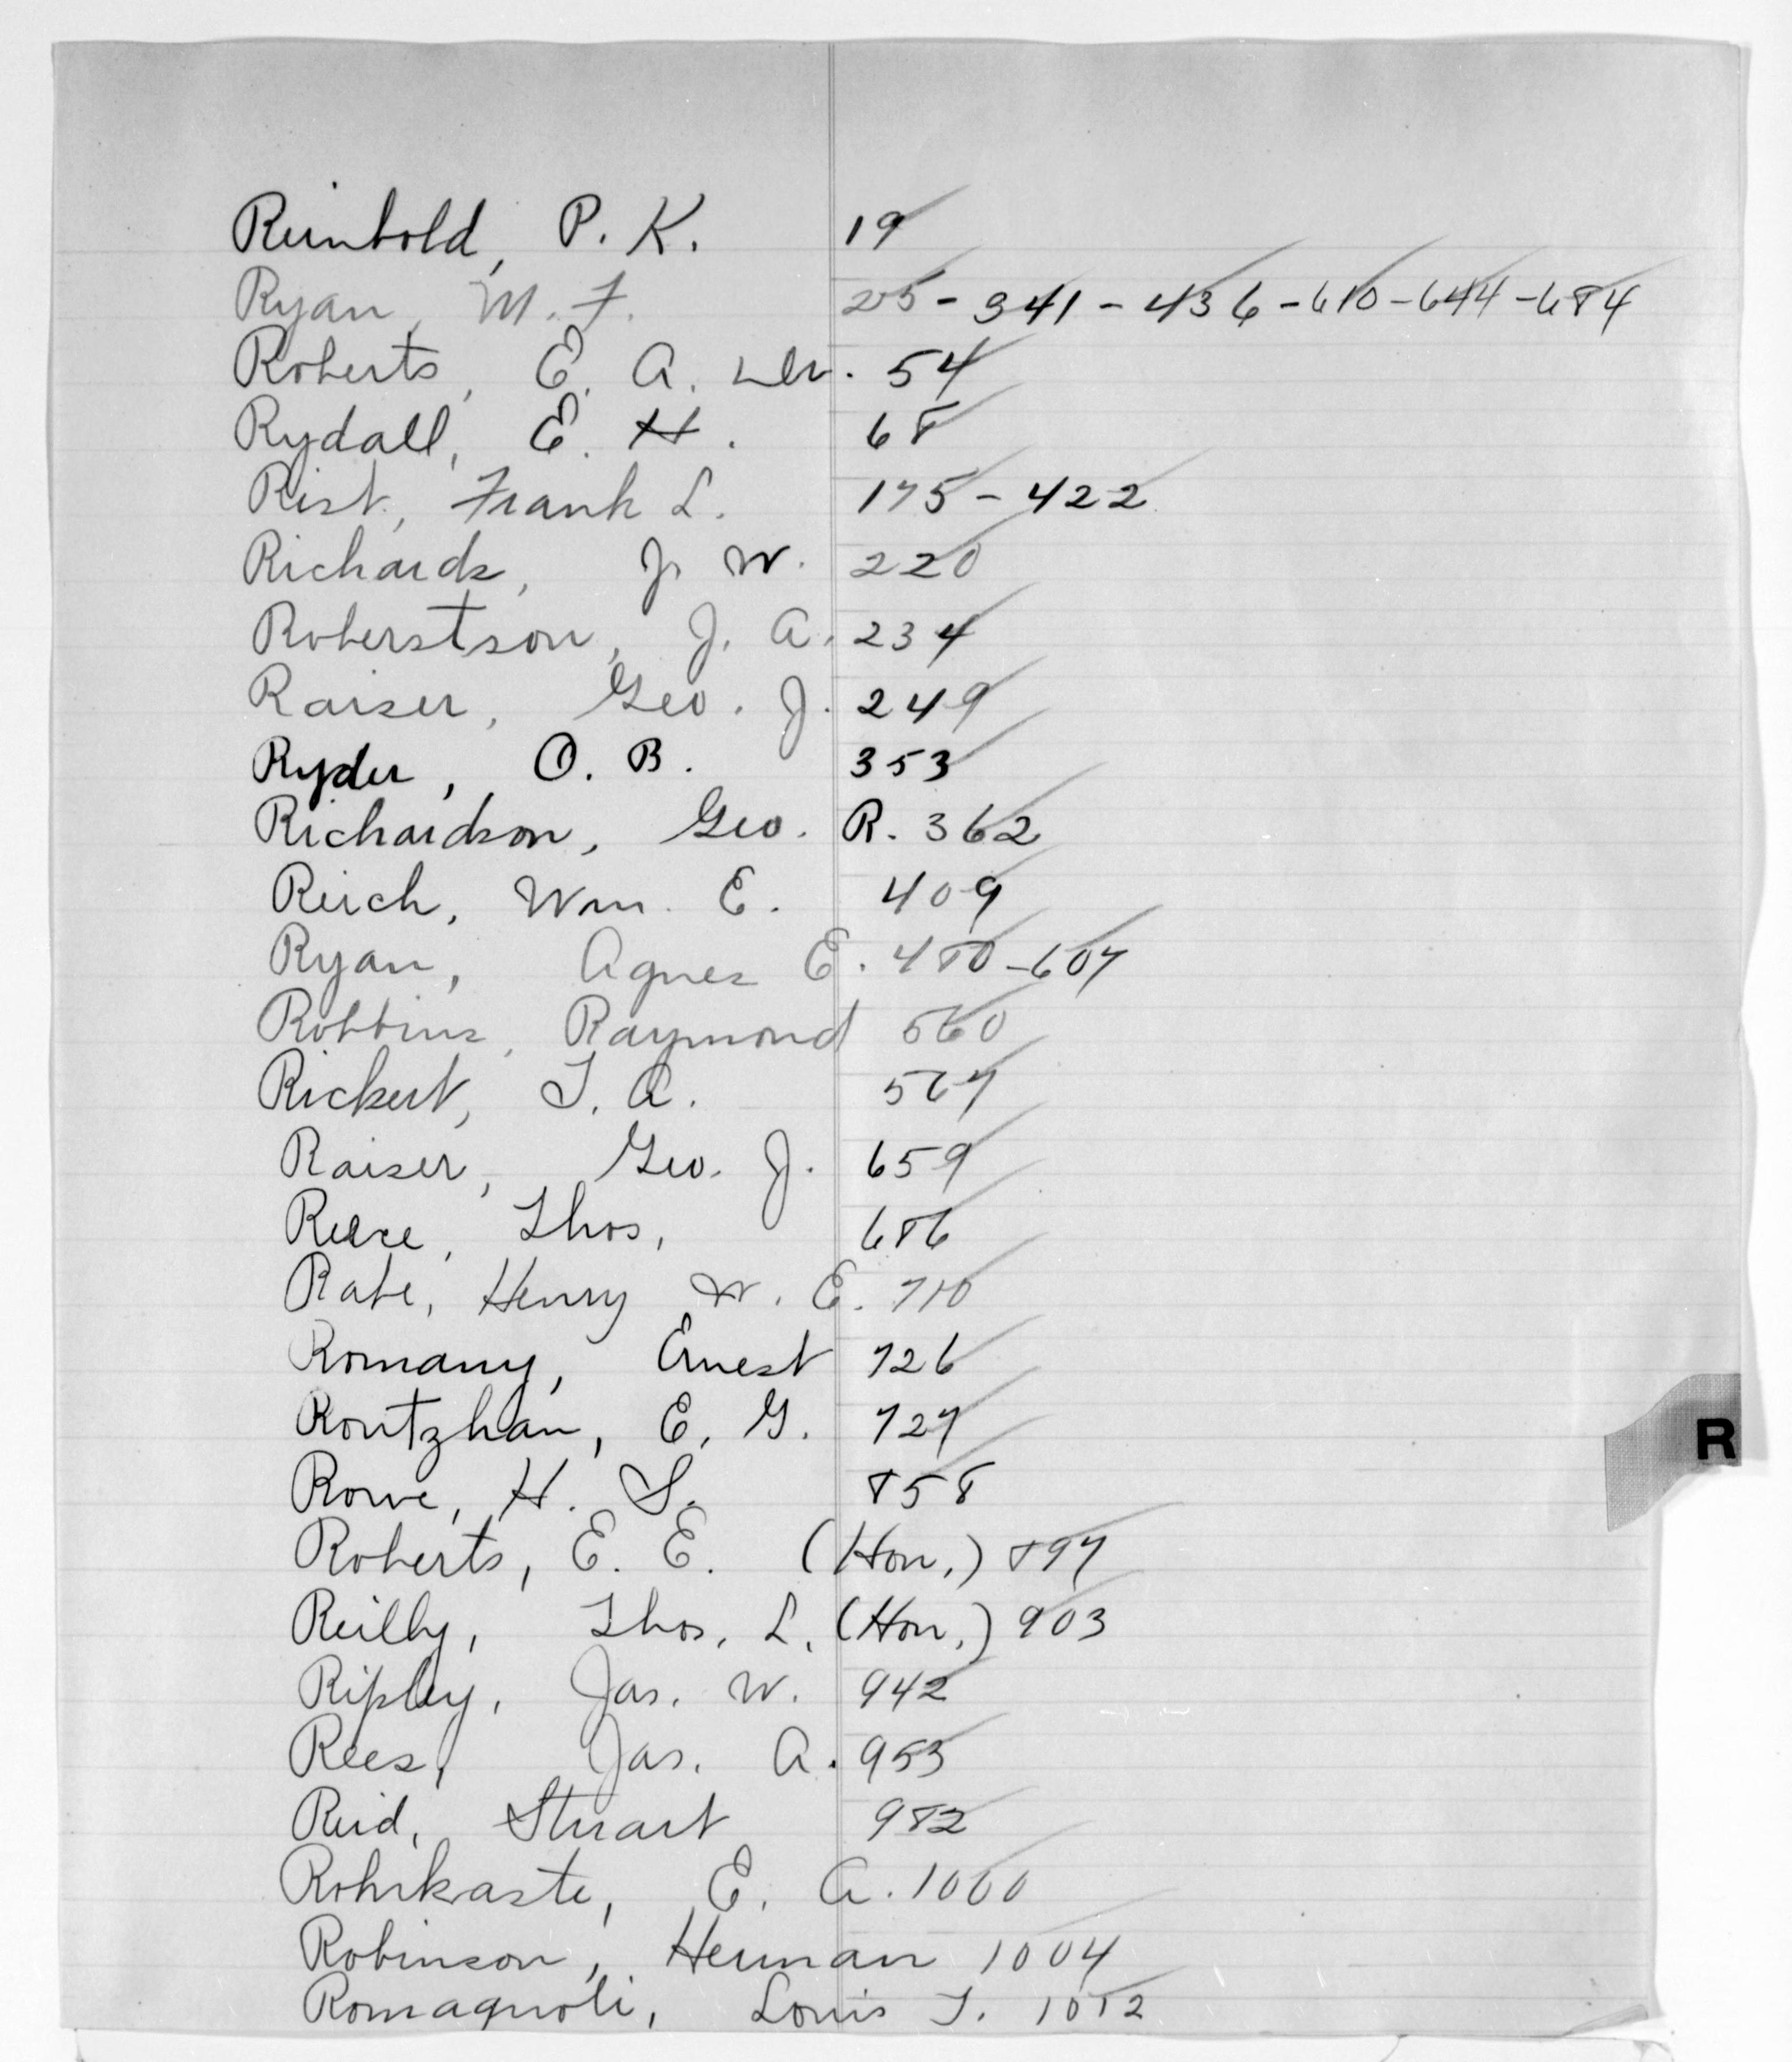 Reinbold, P. K. 19
Ryan, M. F. 205 - 341 - 436 - 610 - 644 - 684
Roberts, E. A. 54
Rydall, E. H. 68
Rist, Frank L. 175 - 422
Richards, J. W. 220
Roberstson, J. A. 234
Raiser, Geo. J. 249
Ryder, O. B. 353
Richardson, Geo. R. 362
Reich, Wm. E. 409
Ryan, Agnes E. 480 - 607
Robbins, Raymond 560
Rickert, T. A. 567
Raiser, Geo. J. 659
Reese, Thos, 686
Rabe, Henry W. E. 710
Romany, Ernest 726
Routzhan, E. G. 727
Rowe, H. S. 858
Roberts, E. E. (Hon,) 897
R
Reilly, Thos. L. (Hon,) 903
Ripley, Jas. W. 942
Rees, Jas. A. 953
Reid, Stuart 982
Rohrkaste, E. A. 1000
Robinson, Herman 1004
Romagnoli, Louis T. 1012